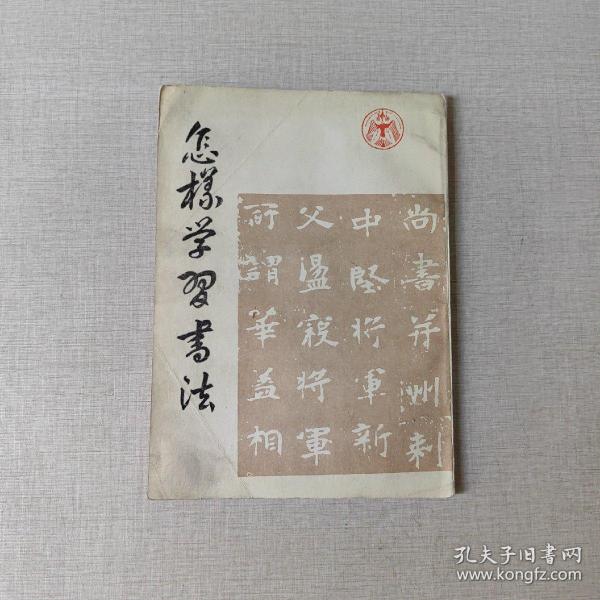 怎樣学習書法
尚書并州刺
中堅將軍新
父盪寇將軍
所謂華蓋相
孔夫子旧書网
www.kongfz.com